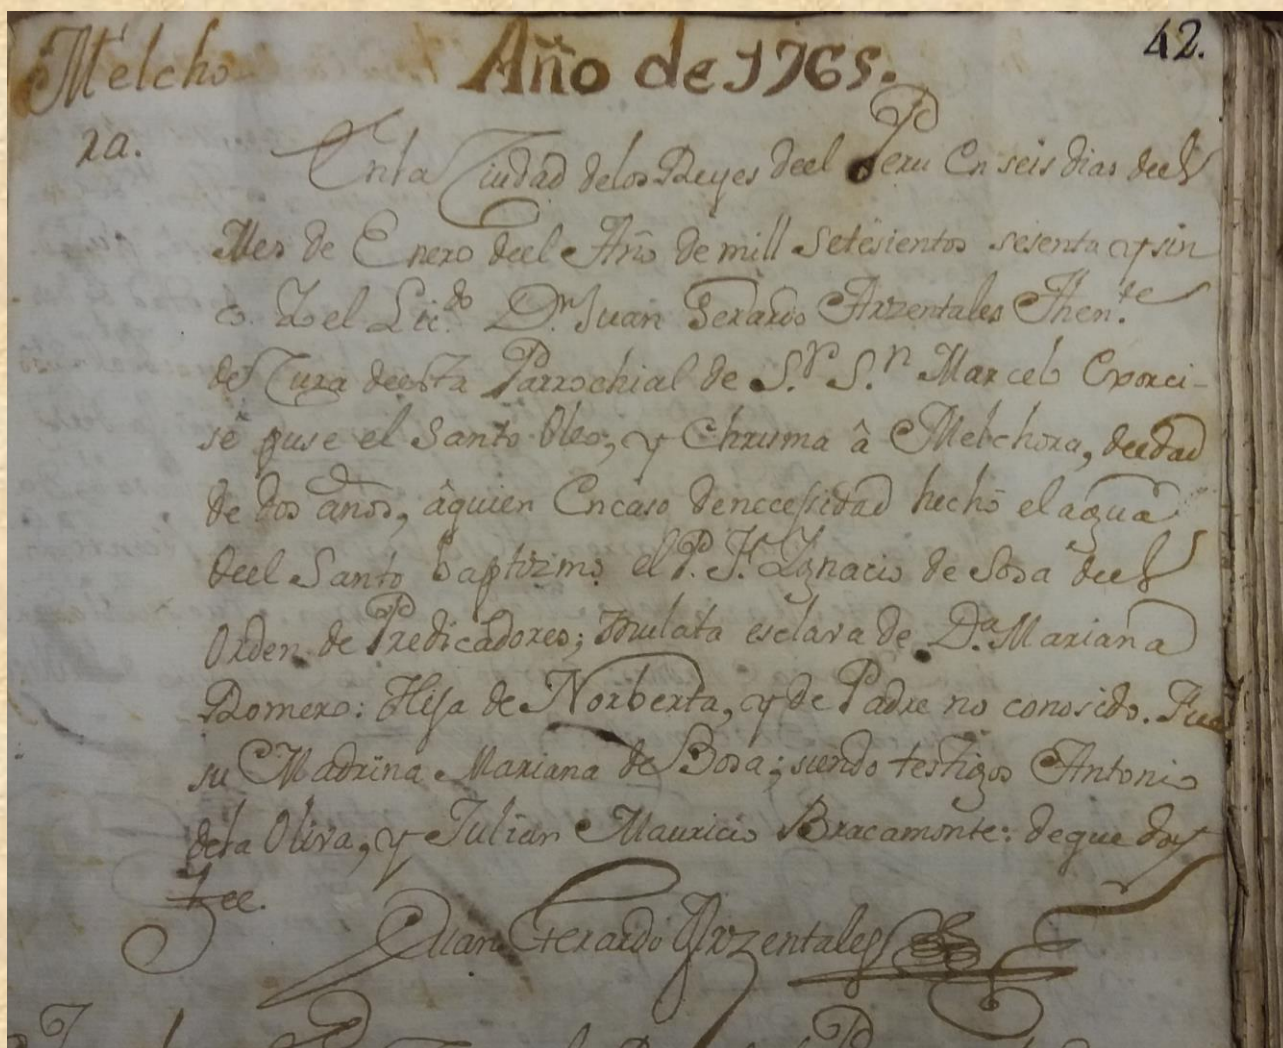 Melcho
Año de 1765.
42.
ra.
Enla Ciudad delos Reyes deel Peru En seis dias deel
Mes de Enero deel Año de mill setesientos sesenta y sin
co. Yo el Lic.do D.n Juan Gerardo Arzentales Then.te
de Cura deesta Parrochial de S.r S.n Marcelo Exorci-
sê puse el Santo Oleo, y Chrisma â Melchora, deedad
de dos años, âquien Encaso denecessidad hechô el agua
deel Santo baptizmo el P. F. Ygnacio de Sosa deel
Orden de Predicadores; mulata esclava de D.a Mariana
Romero: Hija de Norberta, y de Padre no conosido. Fue
su Madrina Mariana de Bosa; siendo testigos Antonio
dela Oliva, y Julian Mauricio Bracamonte: deque doy
fee.
Juan Gerardo Arzentales